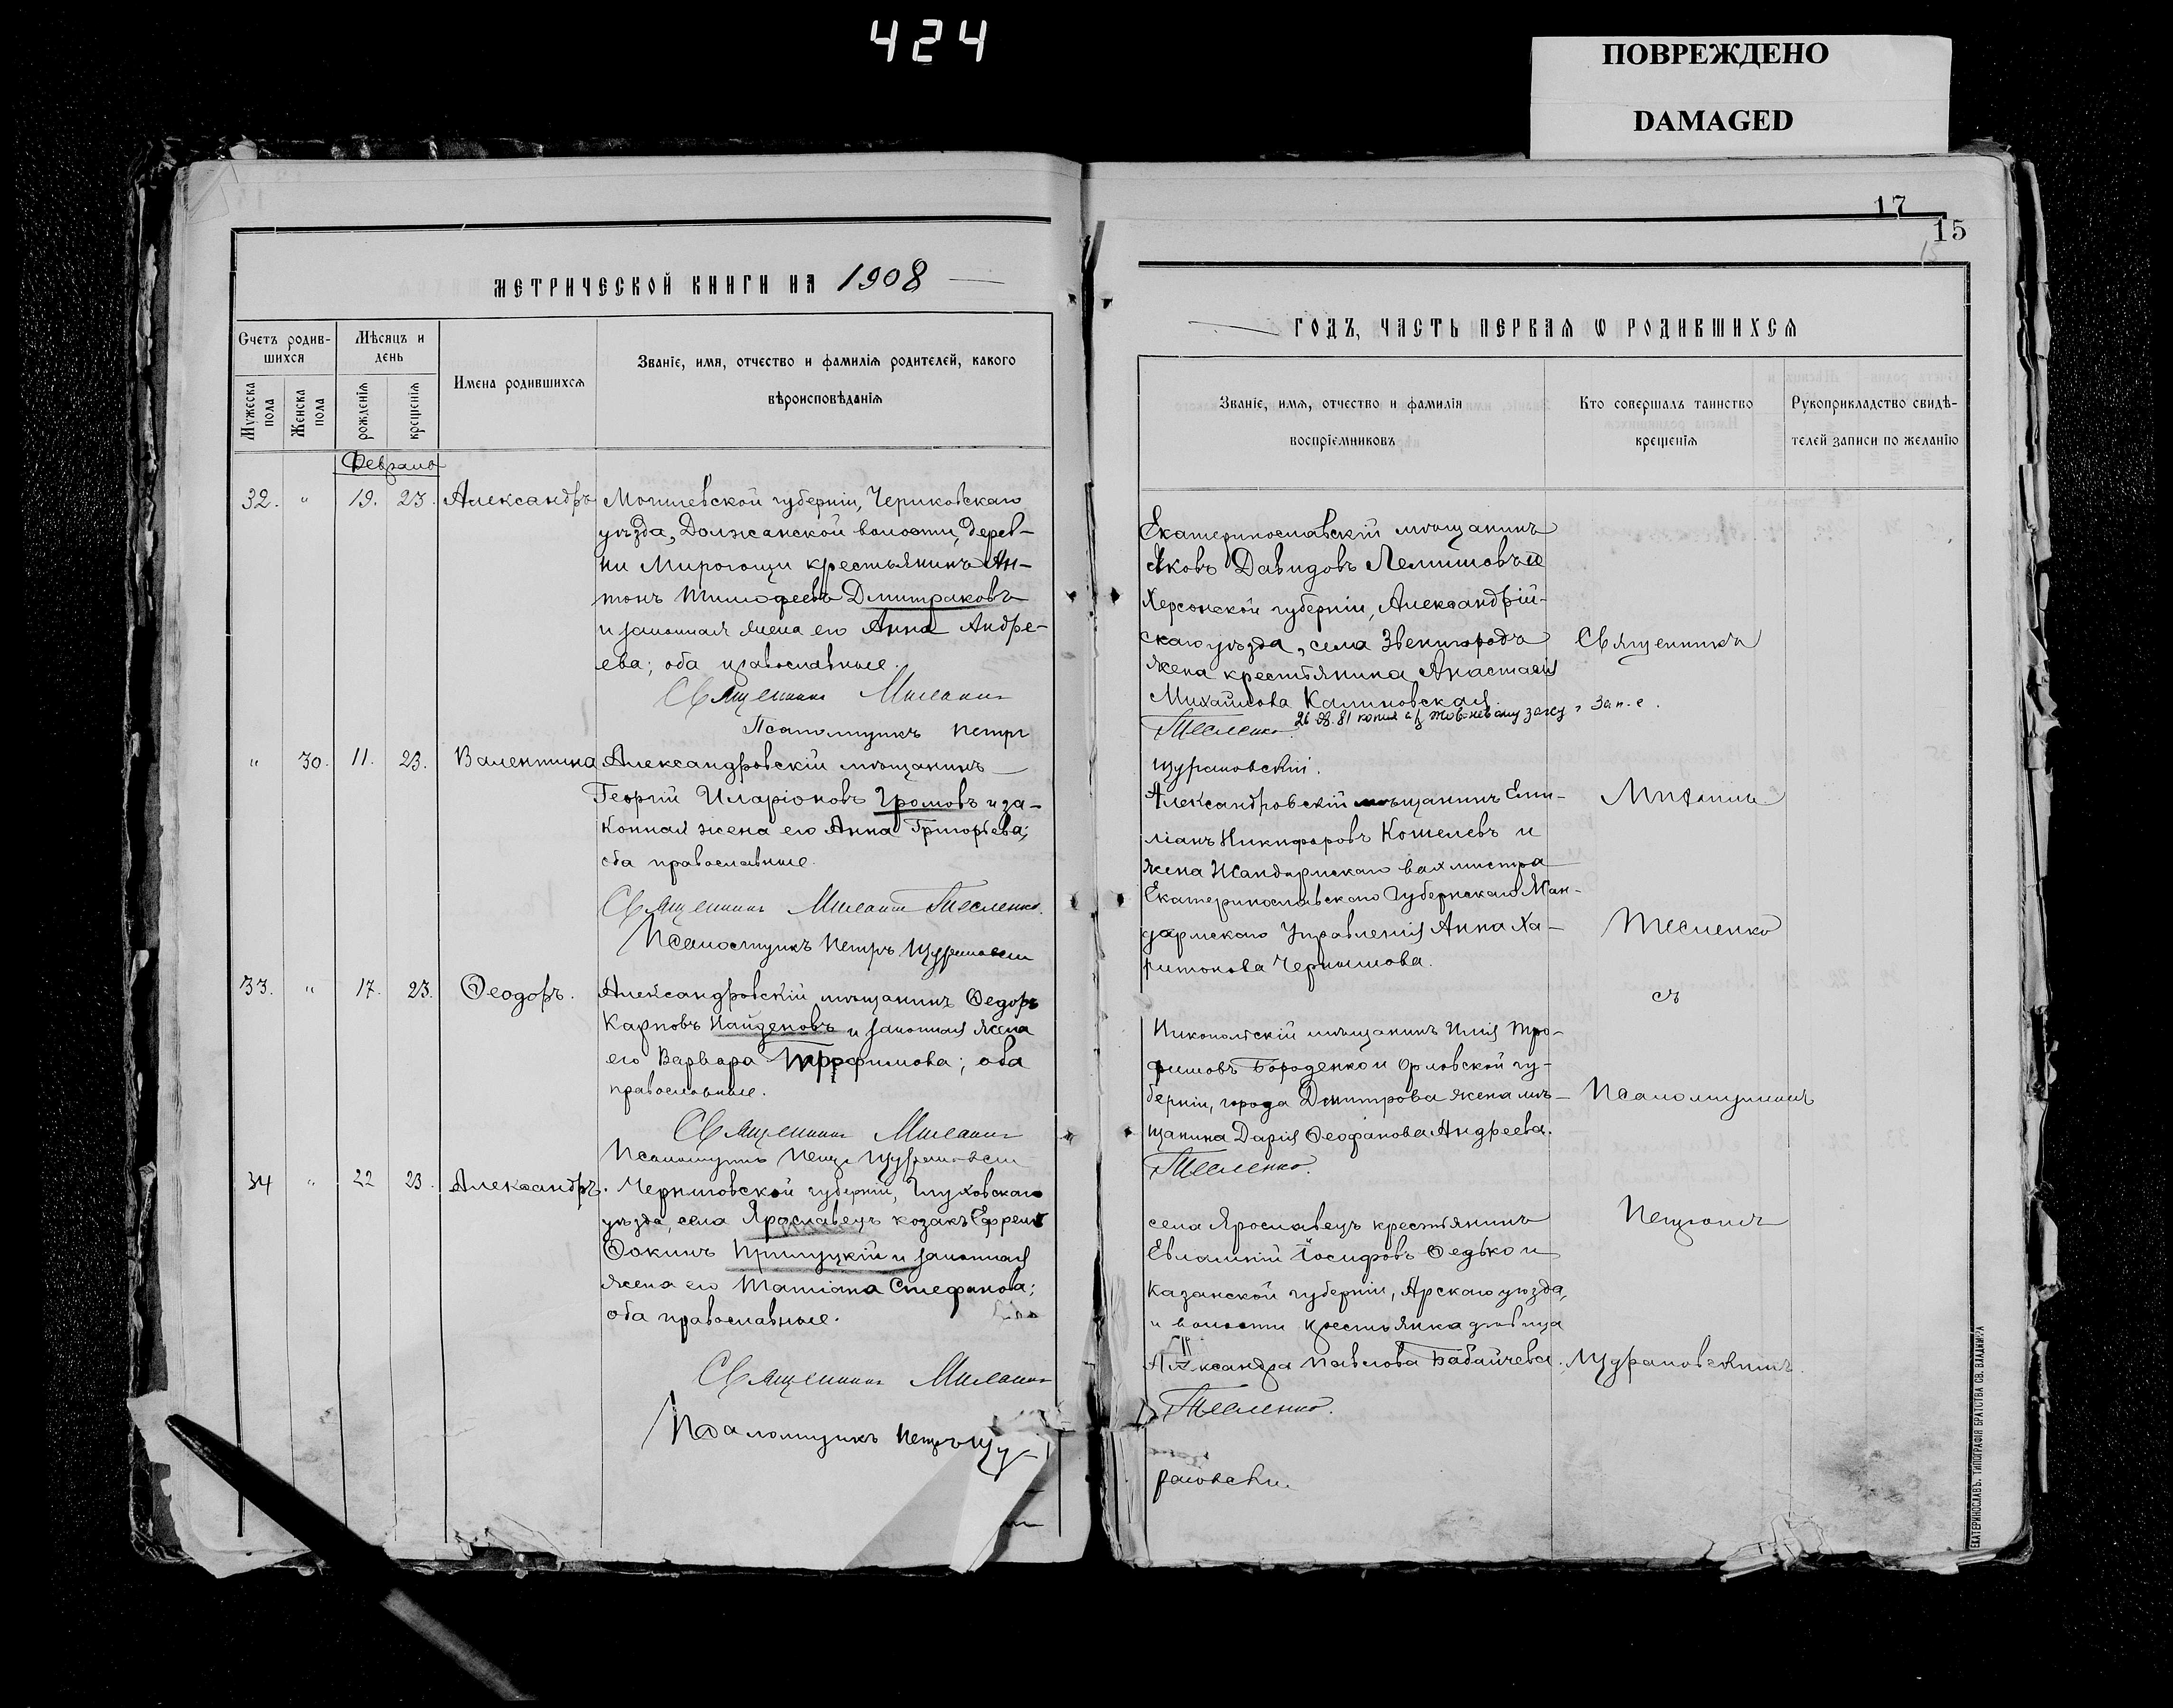 424
ПОВРЕЖДЕНО
DAMAGED
МЕТРИЧЕСКОЙ КНИГИ НА 1908
Счетъ родив-
шихся
Мѣсяцъ и
день
Имена родившихся
Званіе, имя, отчество и фамилія родителей, какого
вѣроисповѣданія
Мужеска
пола
Женска
пола
рожденія
крещенія
Февраль
32. " 19. 23. Александръ
Могилевской губерніи, Чериковскаго
уѣзда, Должанской волости, дерев-
ни Мирогощи крестьянинъ Ан-
тонъ Тимофеевъ Дмитраковъ
и законная жена его Анна Андре-
ева; оба православные.
Священникъ Михаилъ
Псаломщикъ Петръ
" 30. 11. 23. Валентина
Александровскій мѣщанинъ
Георгій Иларіоновъ Громовъ и за-
конная жена его Анна Григорьева;
оба православные.
Священникъ Михаилъ Тесленко.
Псаломщикъ Петръ
33. " 17. 23. Ѳеодоръ.
Александровскій мѣщанинъ Ѳедоръ
Карповъ Найденовъ и законная жена
его Варвара Трофимова; оба
православные.
Священникъ Михаилъ
Псаломщикъ Петръ
34 " 22 23. Александръ.
Черниговской губерніи, Глуховскаго
уѣзда, села Ярославецъ козакъ Ефремъ
Ѳокинъ Прилуцкій и законная
жена его Татіана Стефанова;
оба православные.
Священникъ Михаилъ
Псаломщикъ Петръ Щу-
17
15
ГОДЪ, ЧАСТЬ ПЕРВАЯ Ѡ РОДИВШИХСЯ
Званіе, имя, отчество и фамилія
воспріемниковъ
Кто совершалъ таинство
крещенія
Рукоприкладство свидѣ-
телей записи по желанію
Екатеринославскій мѣщанинъ
Яковъ Давидовъ и
Херсонской губерніи, Александрій-
скаго уѣзда, села Звенигородъ
жена крестьянина Анастасія
Михайлова Калиновская.
Тесленко.
26
81 копия
Щураповскій.
Александровскій мѣщанинъ Еми-
ліанъ Никифоровъ Кошелевъ и
жена Жандармскаго вахмистра
Екатеринославскаго Губернскаго Жан-
дармскаго Управленія Анна Ха-
ритонова Чернышова.
Никопольскій мѣщанинъ Илія Тро-
фимовъ Бороденко и Орловской гу-
берніи, города Дмитрова жена мѣ-
щанина Дарія Ѳеофанова Андреева.
Тесленко.
села Ярославецъ крестьянинъ
Евлампій Іосифовъ Ѳедько и
Казанской губерніи, Арскаго уѣзда,
и волости крестьянка дѣвица
Александра Павлова Бабайчева.
Тесленко.
Священникъ
Михаилъ
Тесленко
съ
Псаломщикомъ
Петромъ
Щураповскимъ.
ЕКАТЕРИНОСЛАВЪ. ТИПОГРАФІЯ БРАТСТВА СВ. ВЛАДИМІРА